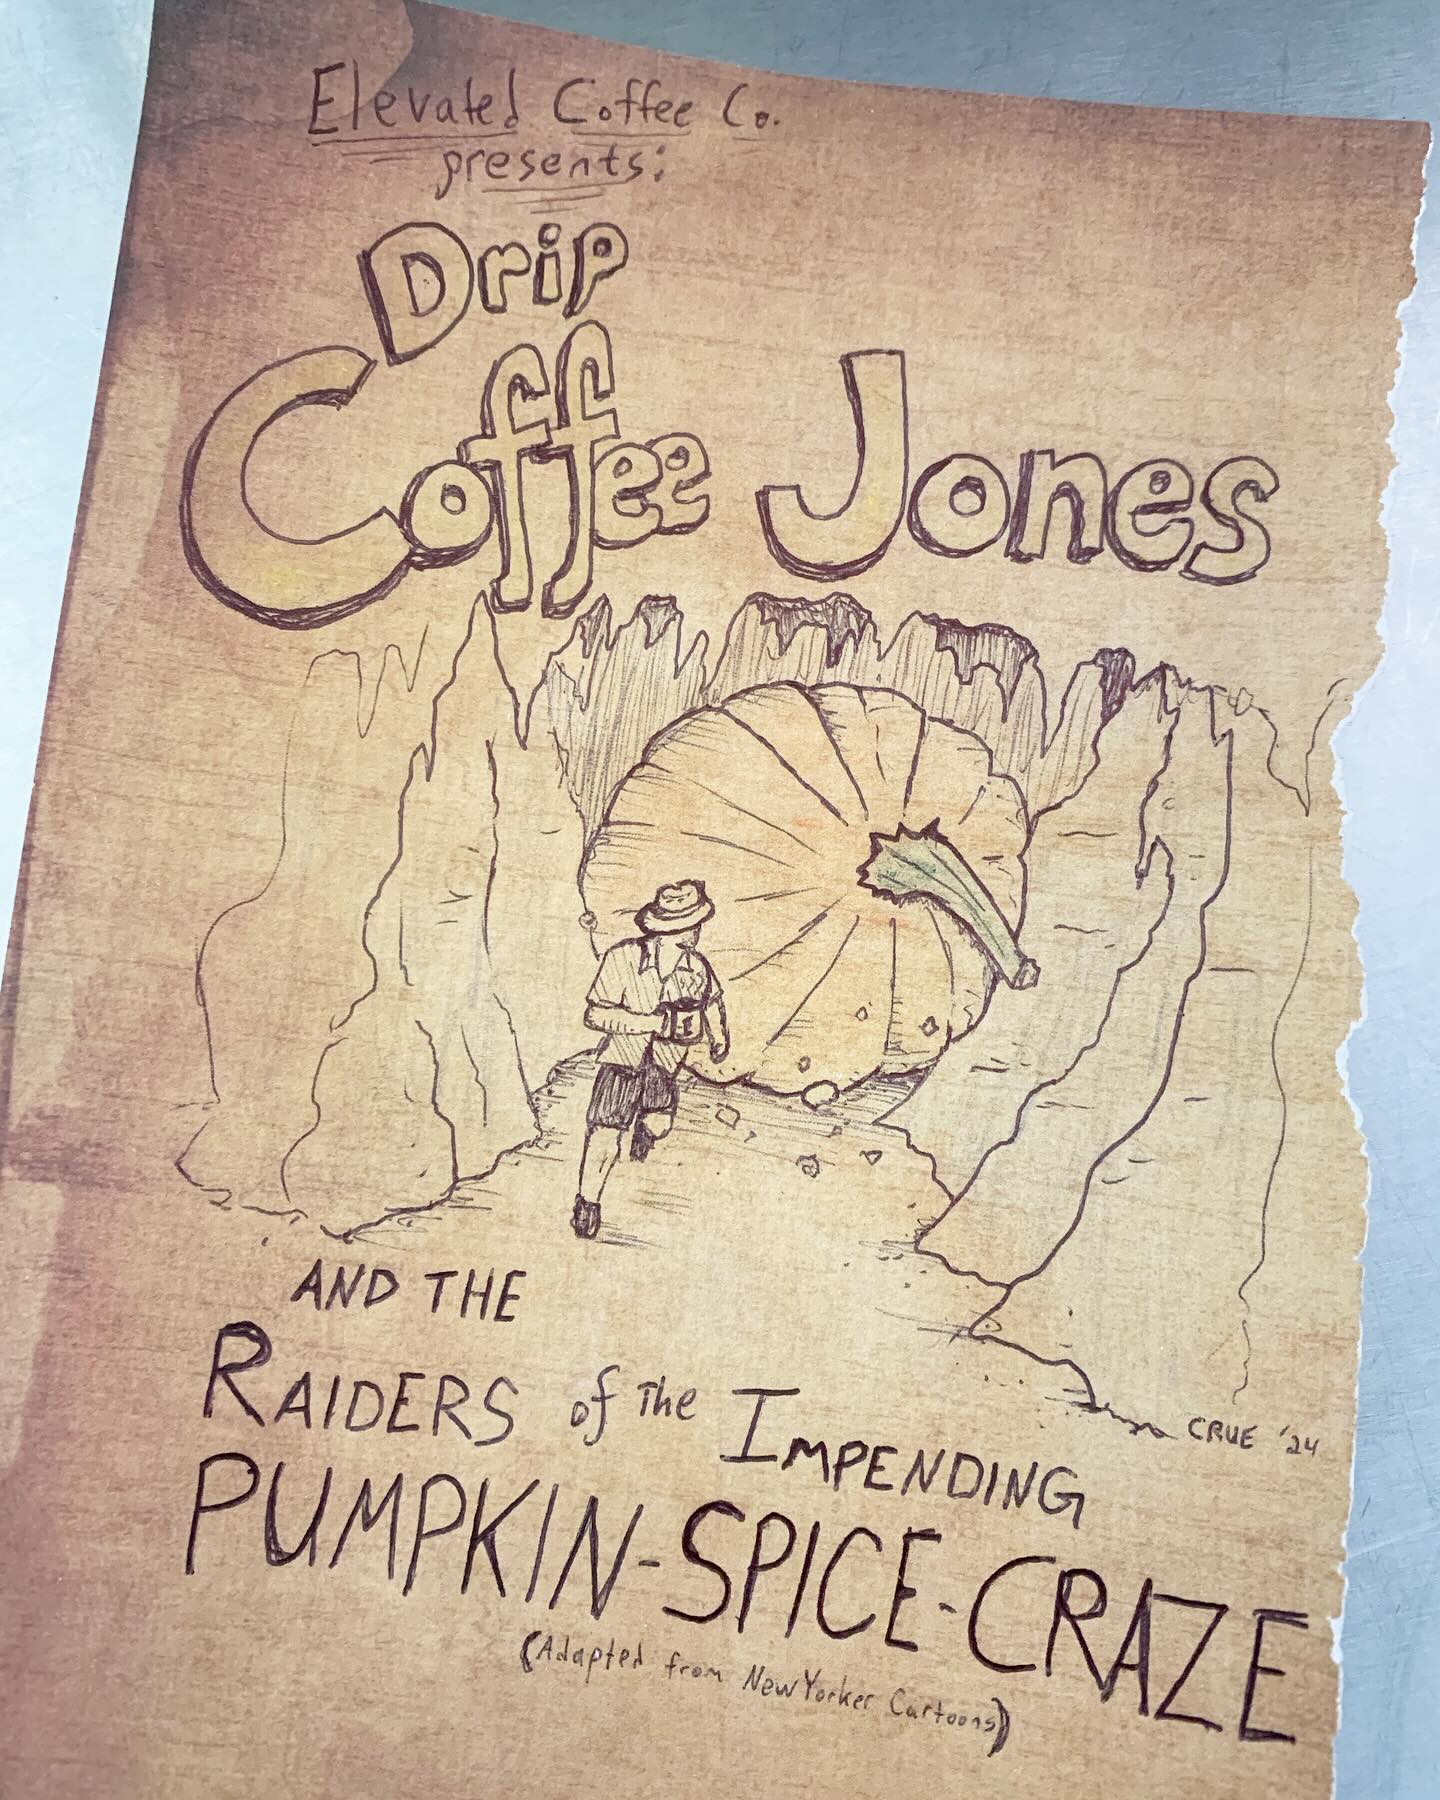 Elevated Coffee Co.
presents:
Drip
Coffee Jones
AND THE
RAIDERS of The IMPENDING
PUMPKIN-SPICE-CRAZE
(Adapted from NewYorker Cartoons)
CRUE '24